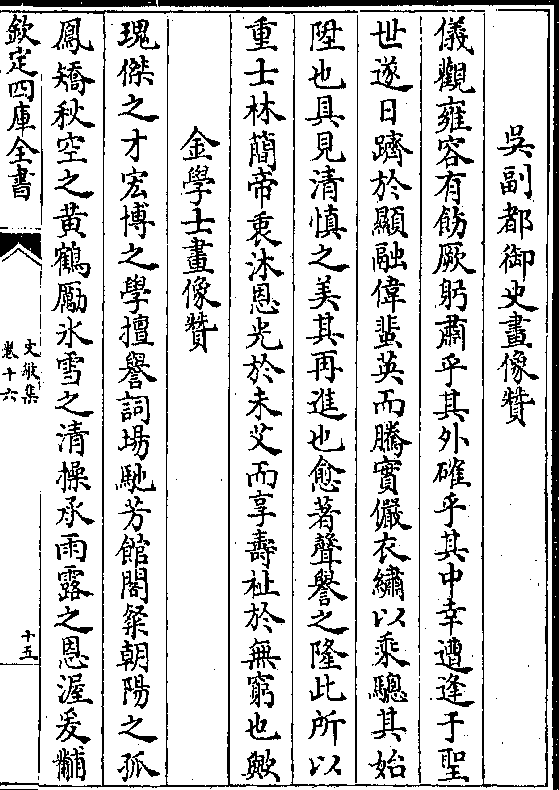 吳副都御史畫像贊
儀觀雍容有飭厥躬肅乎其外確乎其中幸遭逢于聖
世遂日躋於顯融偉蜚英而騰實儼衣繡以乘驄其始
陞也具見清慎之美其再進也愈著聲譽之隆此所以
重士林簡帝衷沐恩光於未艾而享壽祉於無窮也歟
金學士畫像贊
瑰傑之才宏博之學擅譽詞場馳芳館閣粲朝陽之孤
鳳矯秋空之黃鶴勵氷雪之清操承雨露之恩渥爰黼
欽定四庫全書
文敬集
卷十六
十五